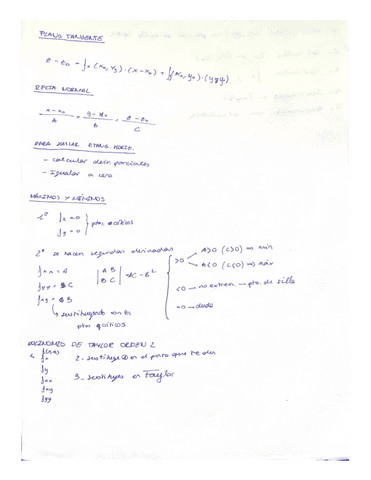 PLANO TANGENTE
z - z₀ = fx (x₀, y₀) · (x - x₀) + fy (x₀, y₀) · (y - y₀)
RECTA NORMAL
x - x₀ / A = y - y₀ / B = z - z₀ / C
PARA HALLAR P.TANG. HORIZ.
- calcular deriv parciales
- Igualar a cero
MÁXIMOS Y MÍNIMOS
1º fx = 0
fy = 0 } ptos críticos
2º se hacen segundas derivadas
fxx = A
fyy = C
fxy = B
↳ sustituyendo con los ptos críticos
| A B |
| B C | AC - B²
>0 → A>0 (C>0) ⇒ mín
A<0 (C<0) ⇒ máx
<0 → no extrem → pto. de silla
=0 → duda
POLINOMIO DE TAYLOR ORDEN 2
1. f(x,y)
fx
fy
fxx
fxy
fyy
2 - sustituyo en el punto que te den
3 - sustituyo en Taylor